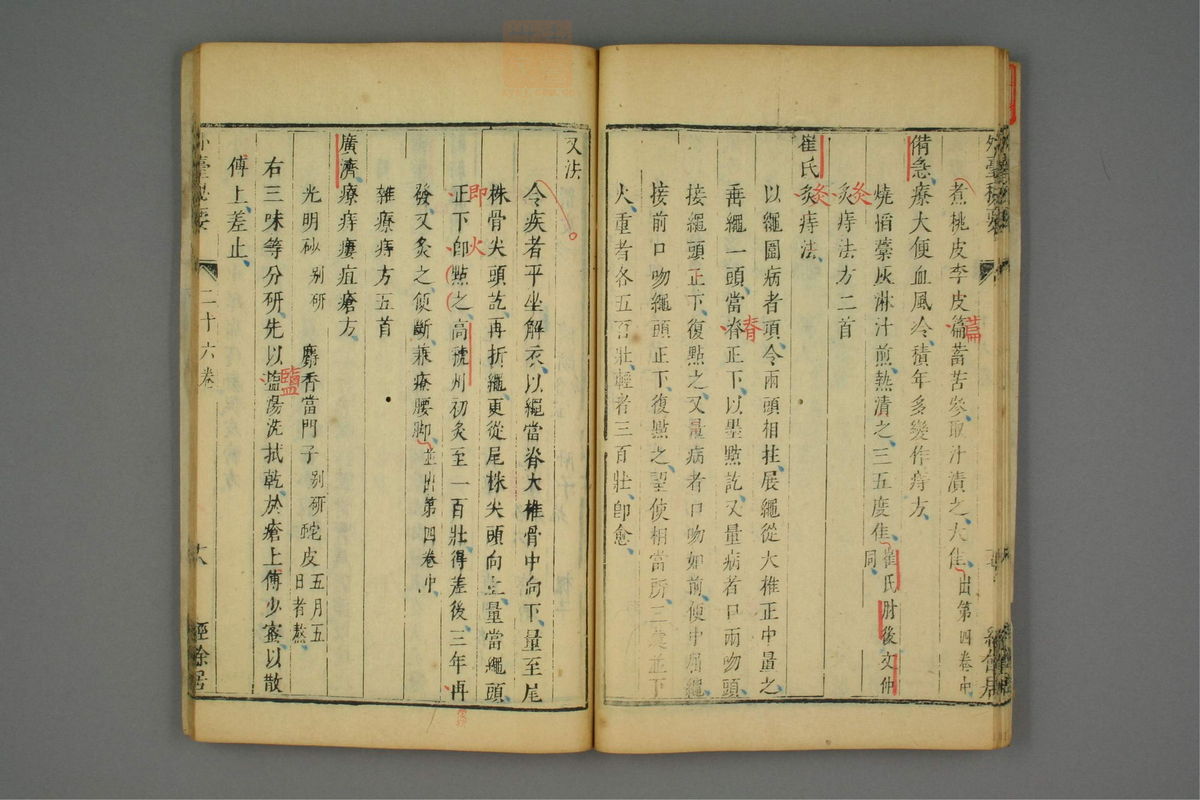 煮桃皮李皮篇蓄苦參取汁漬之大佳出第四卷中
備急療大便血風冷積年多變作痔方
燒稻藁灰淋汁煎熱漬之三五度佳崔氏肘後文仲同
灸痔法方二首
崔氏灸痔法
以繩圍病者項令兩頭相拄展繩從大椎正中量之
垂繩一頭當脊正下以墨點訖又量病者口兩吻頭
接繩頭正下復點之又量病者口吻如前便中屈繩
接前口吻繩頭正下復點之望使相當所三處並下
火重者各五百壯輕者三百壯即愈
又法
令疾者平坐解衣以繩當脊大椎骨中向下量至尾
株骨尖頭訖再折繩更從尾株尖頭向上量當繩頭
正下即點之高虢州初灸至一百壯得差後三年再
即火
發又灸之便斷兼療腰脚並出第四卷中
雜療痔方五首
廣濟療痔瘻疽瘡方
光明砂别研 麝香當門子别研 蛇皮五月五日者熬
右三味等分研先以鹽湯洗拭乾於瘡上傅少蜜以散
鹽
傅上差止
二十六卷
經餘居